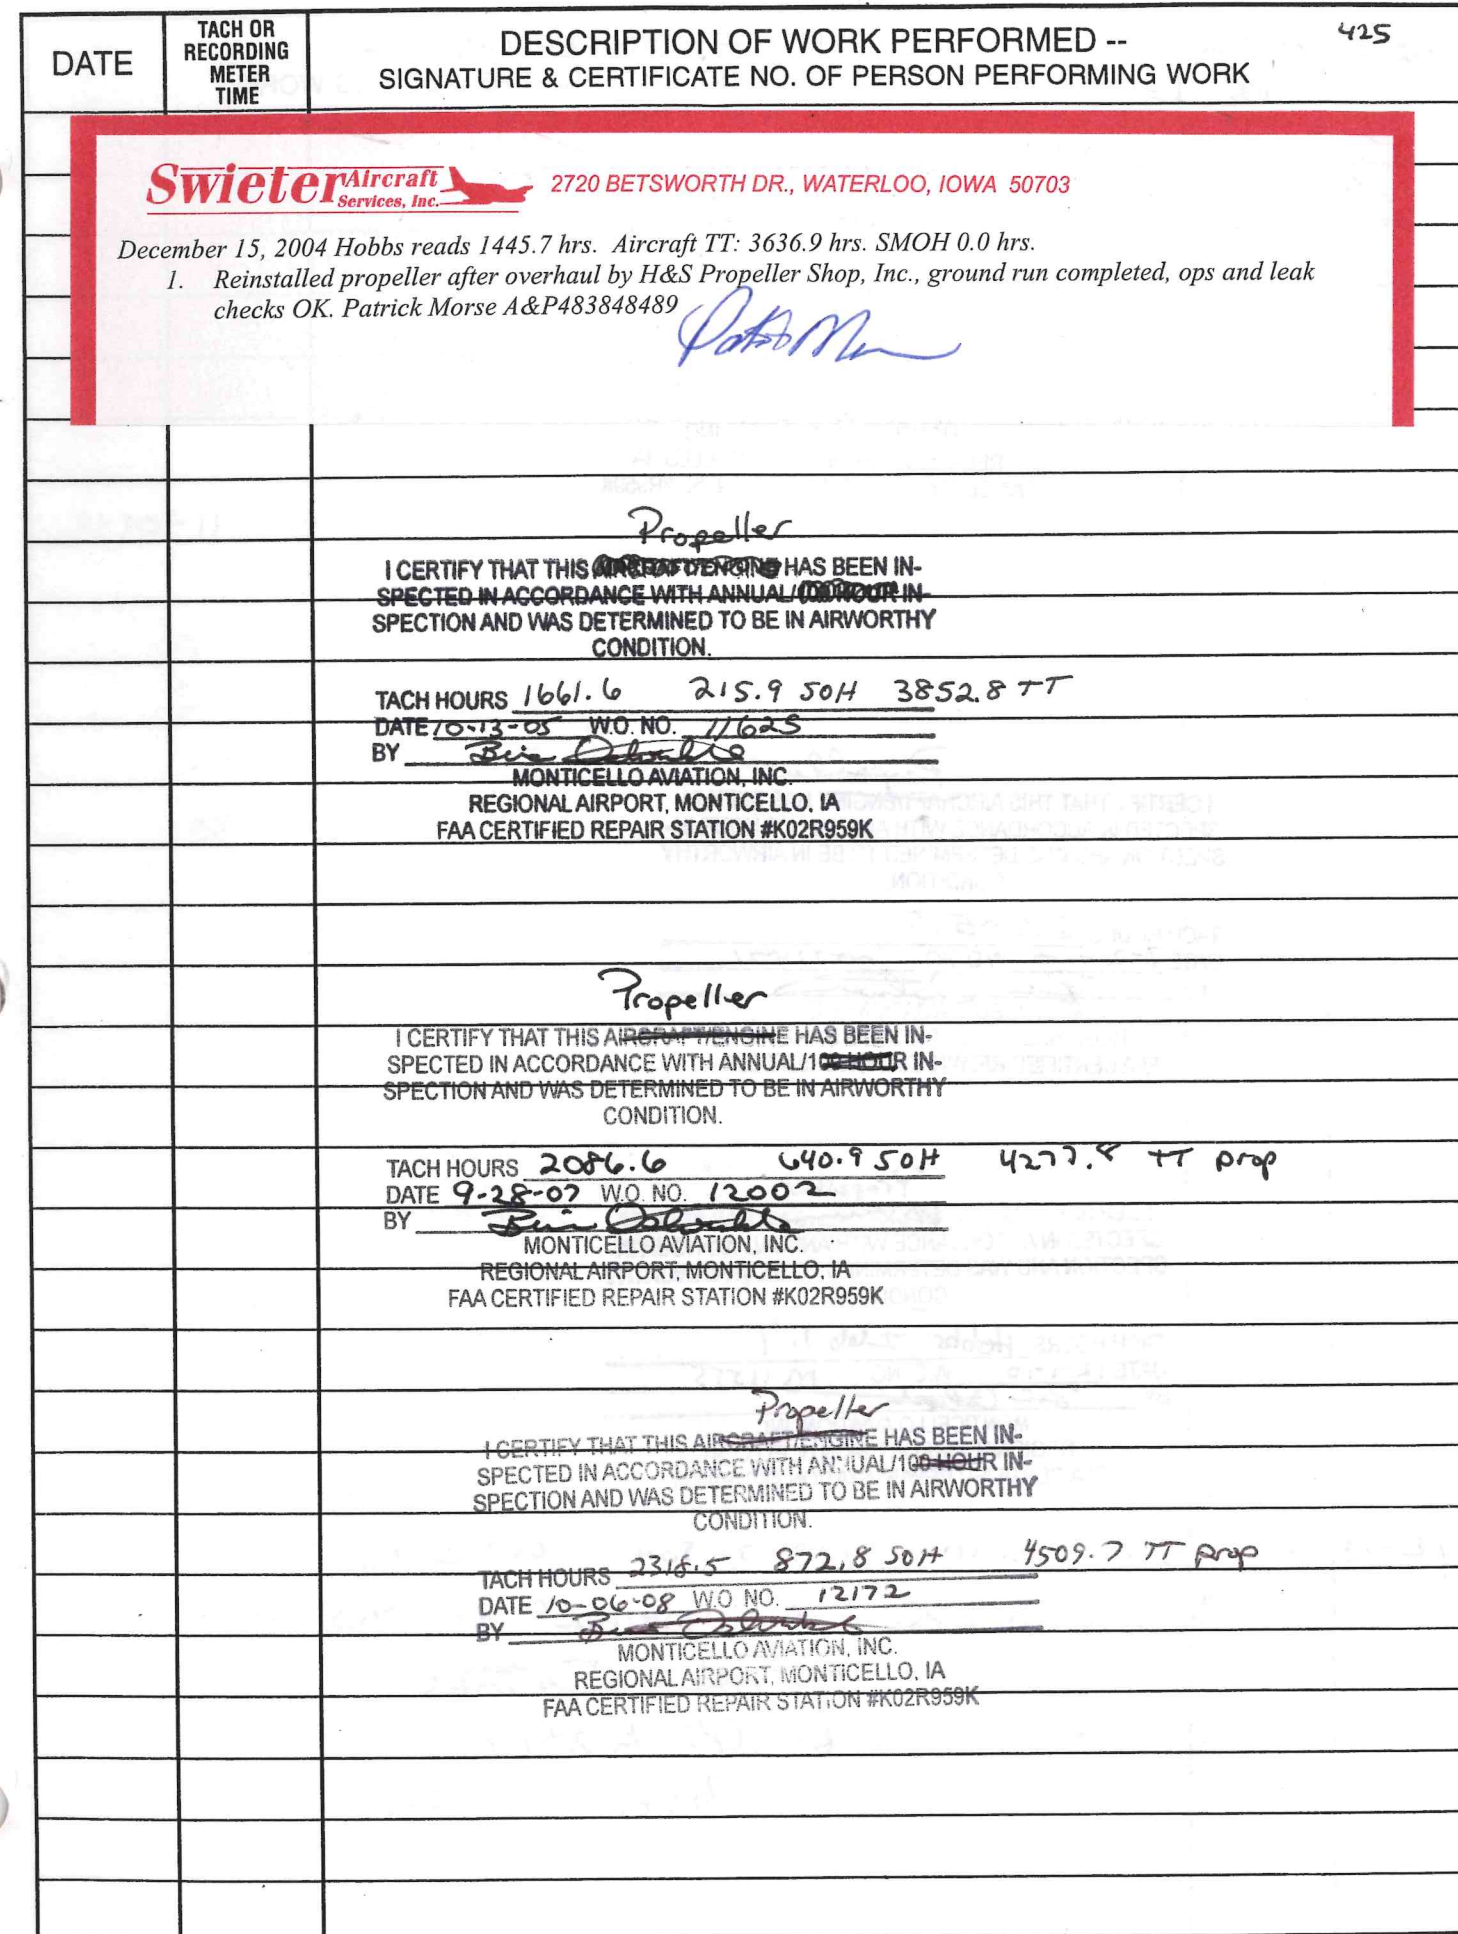 425
DATE
TACH OR
RECORDING
METER
TIME
DESCRIPTION OF WORK PERFORMED --
SIGNATURE & CERTIFICATE NO. OF PERSON PERFORMING WORK
Swieter Aircraft Services, Inc. 2720 BETSWORTH DR., WATERLOO, IOWA 50703
December 15, 2004 Hobbs reads 1445.7 hrs. Aircraft TT: 3636.9 hrs. SMOH 0.0 hrs.
1. Reinstalled propeller after overhaul by H&S Propeller Shop, Inc., ground run completed, ops and leak
checks OK. Patrick Morse A&P483848489
Propeller
I CERTIFY THAT THIS AIRCRAFT/ENGINE HAS BEEN IN-
SPECTED IN ACCORDANCE WITH ANNUAL/100 HOUR IN-
SPECTION AND WAS DETERMINED TO BE IN AIRWORTHY
CONDITION.
TACH HOURS 1661.6 215.9 SOH 3852.8 TT
DATE 10-13-05 W.O. NO. 11625
BY
MONTICELLO AVIATION, INC.
REGIONAL AIRPORT, MONTICELLO, IA
FAA CERTIFIED REPAIR STATION #K02R959K
Propeller
I CERTIFY THAT THIS AIRCRAFT/ENGINE HAS BEEN IN-
SPECTED IN ACCORDANCE WITH ANNUAL/100 HOUR IN-
SPECTION AND WAS DETERMINED TO BE IN AIRWORTHY
CONDITION.
TACH HOURS 2086.6 640.9 SOH 4277.8 TT prop
DATE 9-28-07 W.O. NO. 12002
BY
MONTICELLO AVIATION, INC.
REGIONAL AIRPORT, MONTICELLO, IA
FAA CERTIFIED REPAIR STATION #K02R959K
Propeller
I CERTIFY THAT THIS AIRCRAFT/ENGINE HAS BEEN IN-
SPECTED IN ACCORDANCE WITH ANNUAL/100 HOUR IN-
SPECTION AND WAS DETERMINED TO BE IN AIRWORTHY
CONDITION.
TACH HOURS 2318.5 872.8 SOH 4509.7 TT prop
DATE 10-06-08 W.O NO. 12172
BY
MONTICELLO AVIATION, INC.
REGIONAL AIRPORT, MONTICELLO, IA
FAA CERTIFIED REPAIR STATION #K02R959K